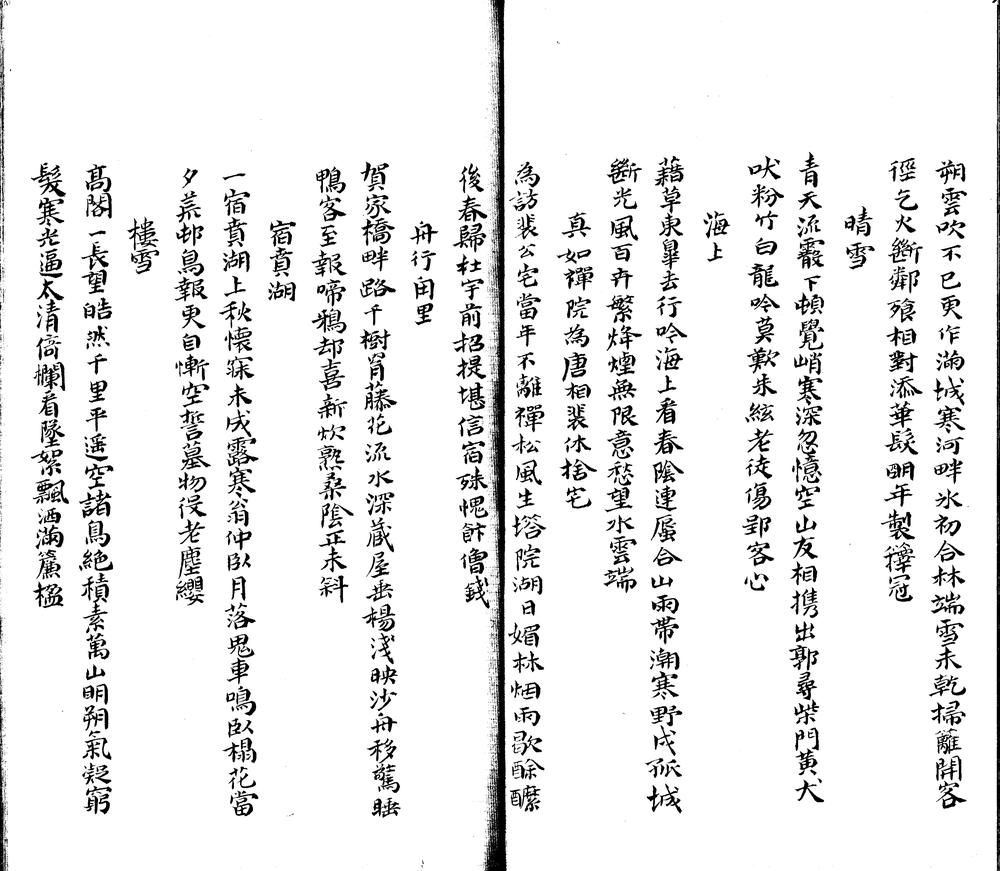 朔雲吹不已更作滿城寒河畔氷初合林端雪未乾掃籬開客
徑乞火斷鄰飱相對添華髮明年製籜冠
晴雪
青天流霰下頓覺峭寒深忽憶空山友相携出郭尋柴門黄犬
吠粉竹白龍吟莫歎朱絃老徒傷郢客心
海上
藉草東臯去行吟海上看春陰連蜃合山雨帶潮寒野戍孤城
斷光風百卉繁烽煙無限意愁望水雲端
真如禪院為唐相裴休捨宅
為訪裴公宅當年不離禪松風生塔院湖日媚林烟雨歇酴醿
後春歸杜宇前招提堪信宿殊愧飰僧錢
舟行甪里
賀家橋畔路千樹罥藤花流水深蔵屋垂楊淺映沙舟移驚睡
鴨客至報啼鴉却喜新炊熟桑陰正未斜
宿賁湖
一宿賁湖上秋懷寐未成露寒翁仲臥月落鬼車鳴臥榻花當
夕荒邨鳥報更自慚空誓墓物役老塵纓
樓雪
髙閣一長望皓然千里平遥空諸鳥絶積素萬山明朔氣凝窮
髮寒光逼太清倚欄看墜絮飄洒滿簾楹